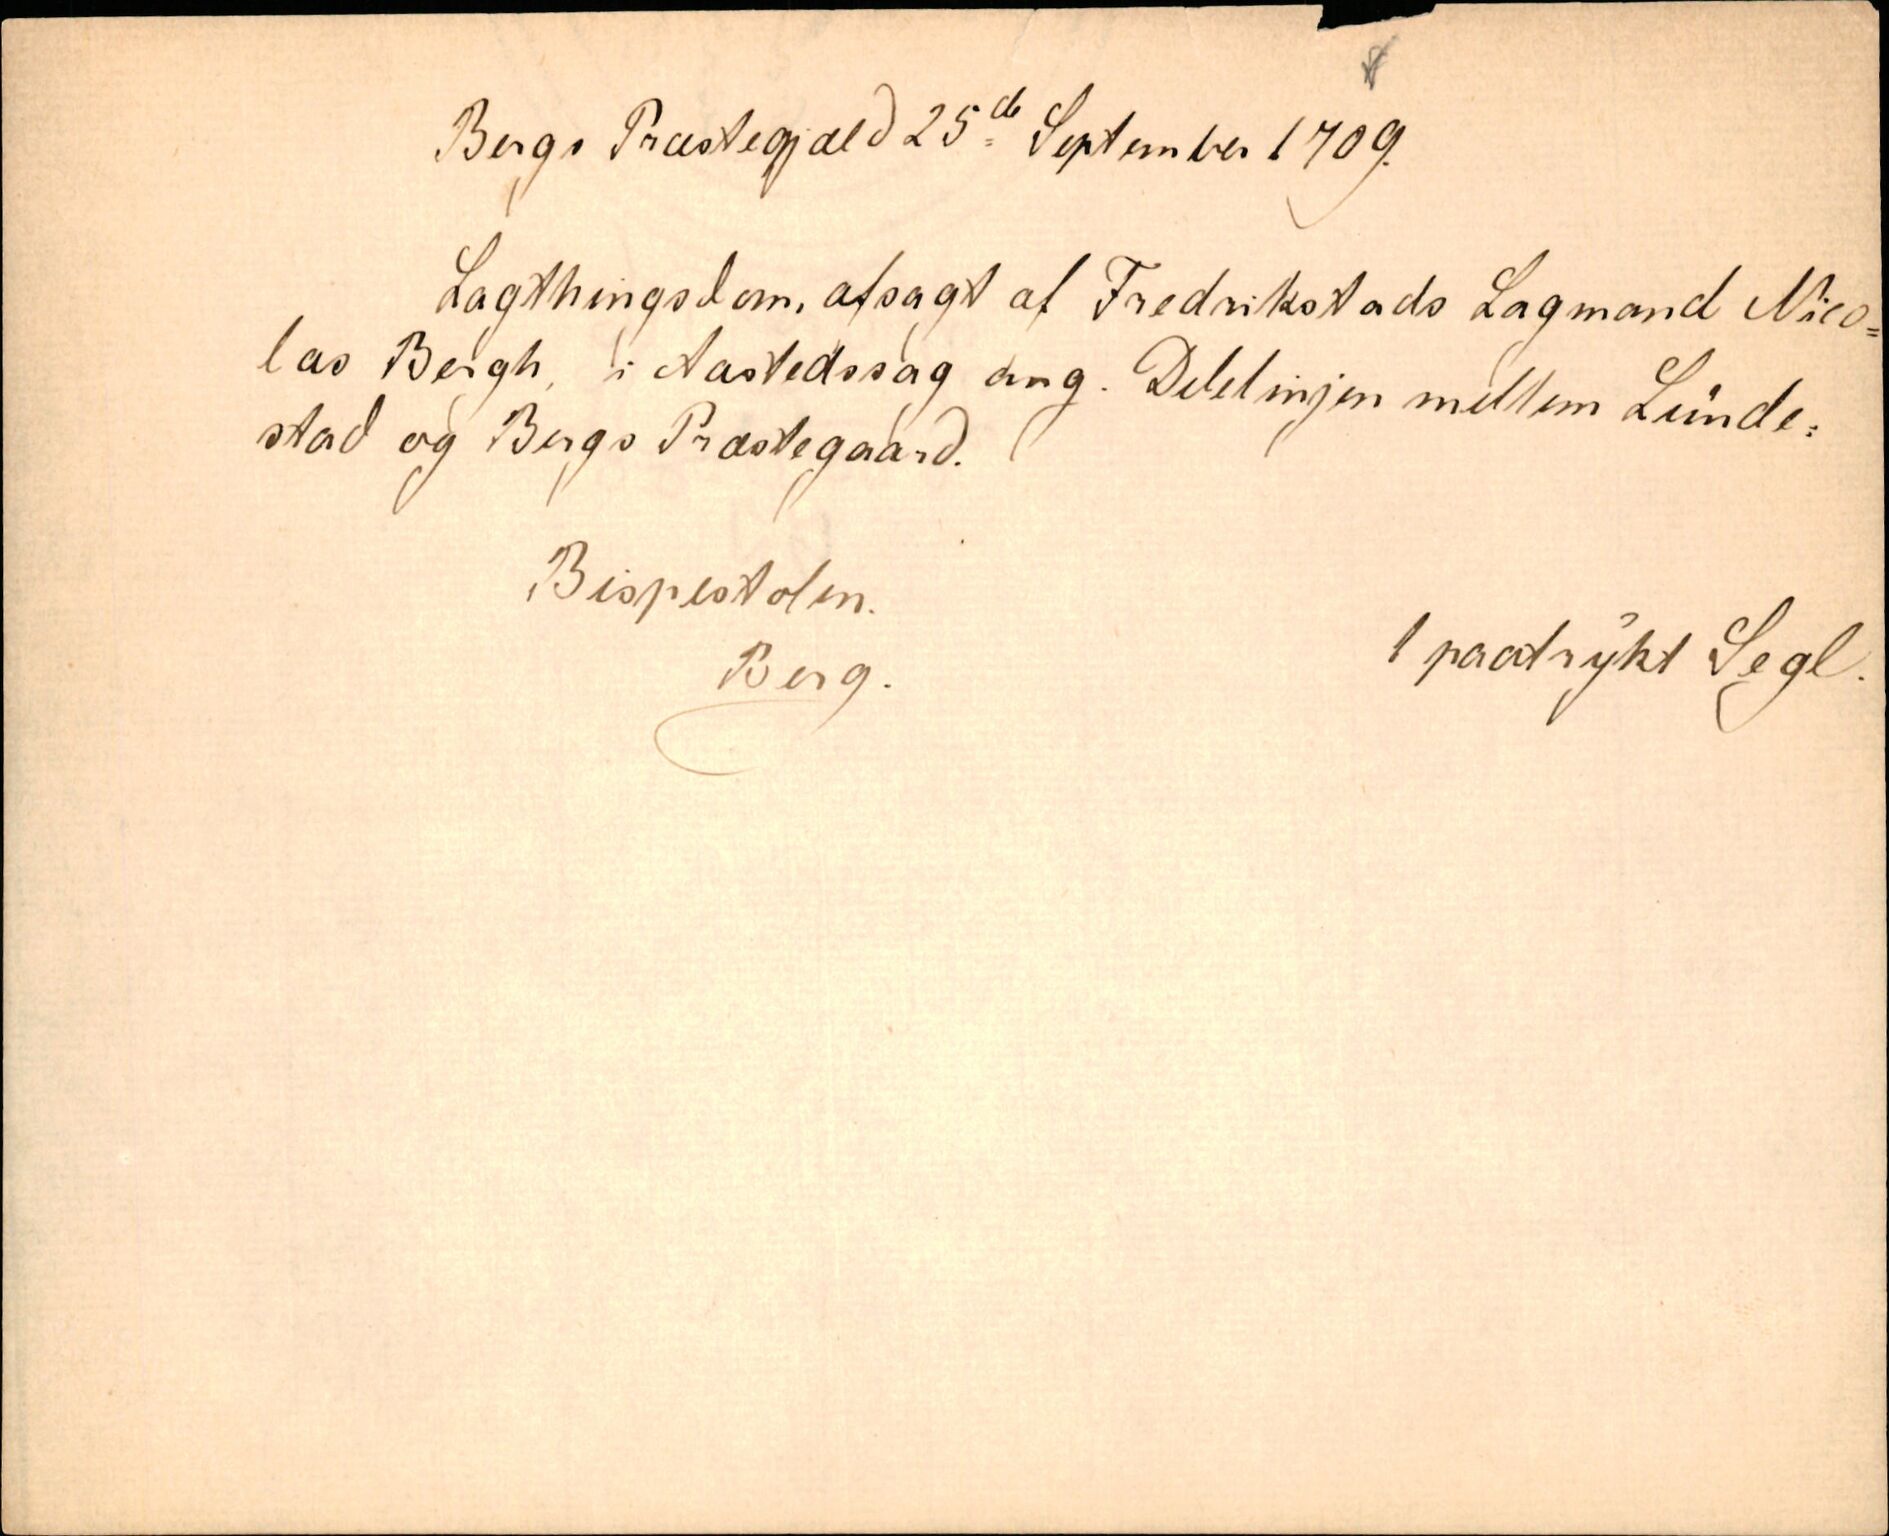 Bergs Præstegjæld 25de September 1709.
Lagthingsdom, afsagt af Fredrikstads Lagmand Nico=
las Bergh, i Aastedssag ang. Delelinjen mellem Lunde=
stad og Bergs Præstegaard.
Bispestolen.
Berg.
1 paatrykt Segl.